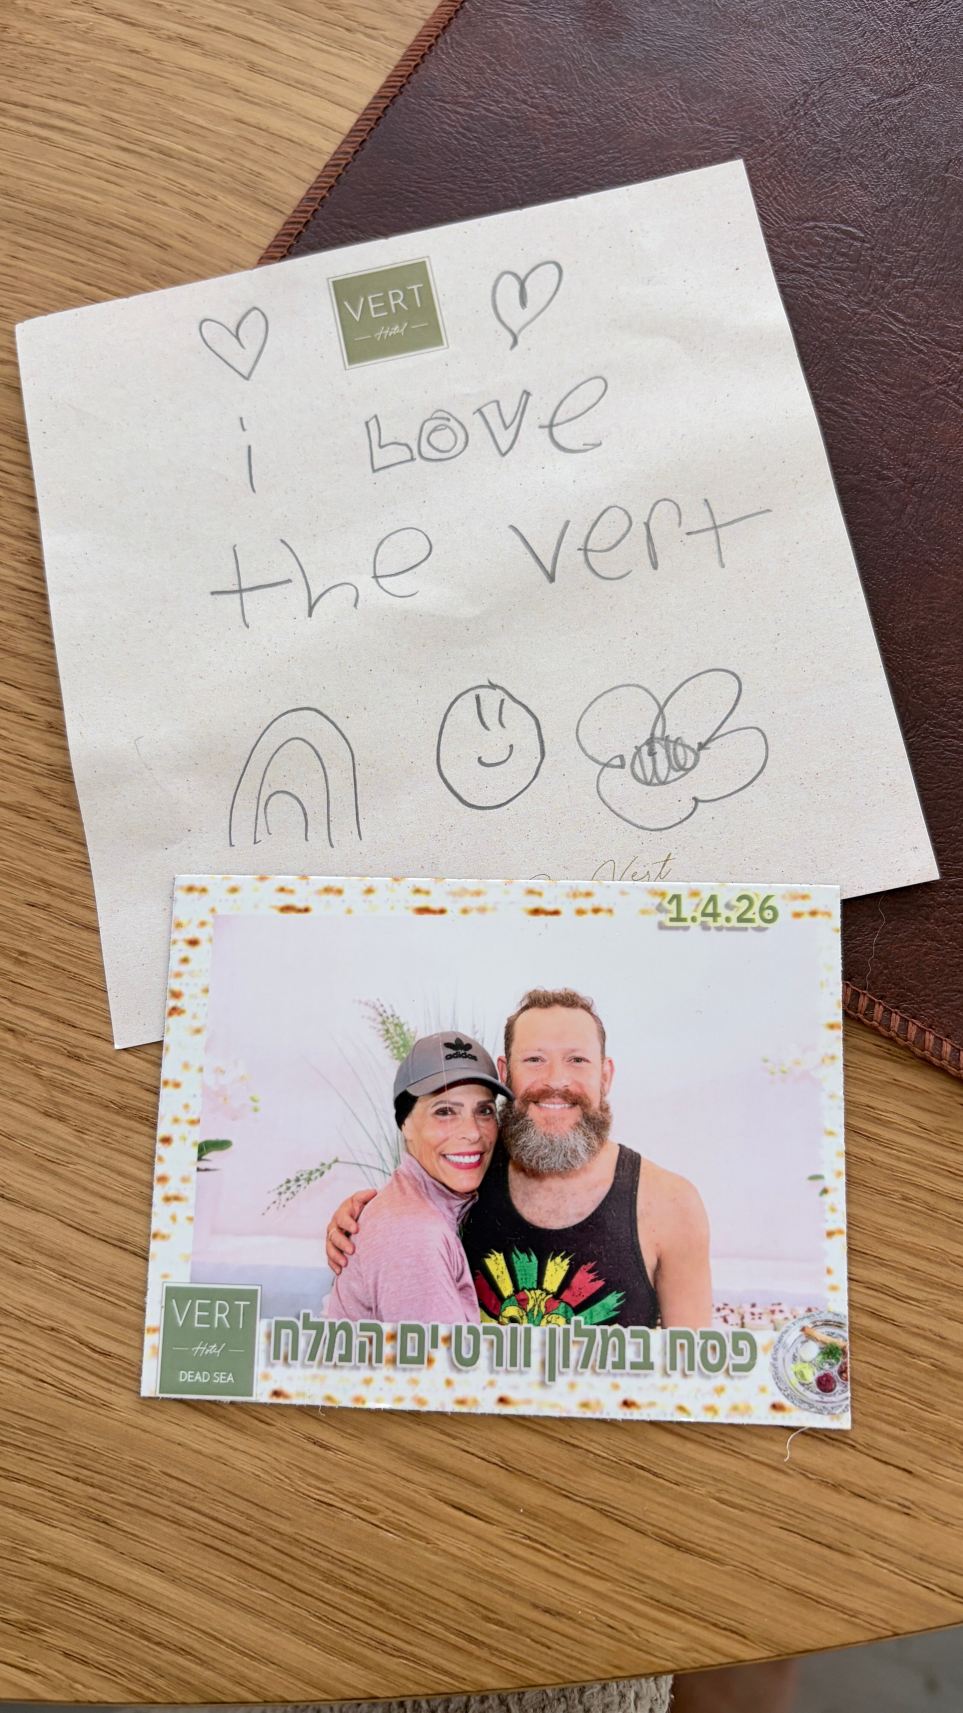 VERT
Hotel
i LOVe
the vert
Vert
1.4.26
adidas
VERT
Hotel
DEAD SEA
פסח במלון וורט ים המלח